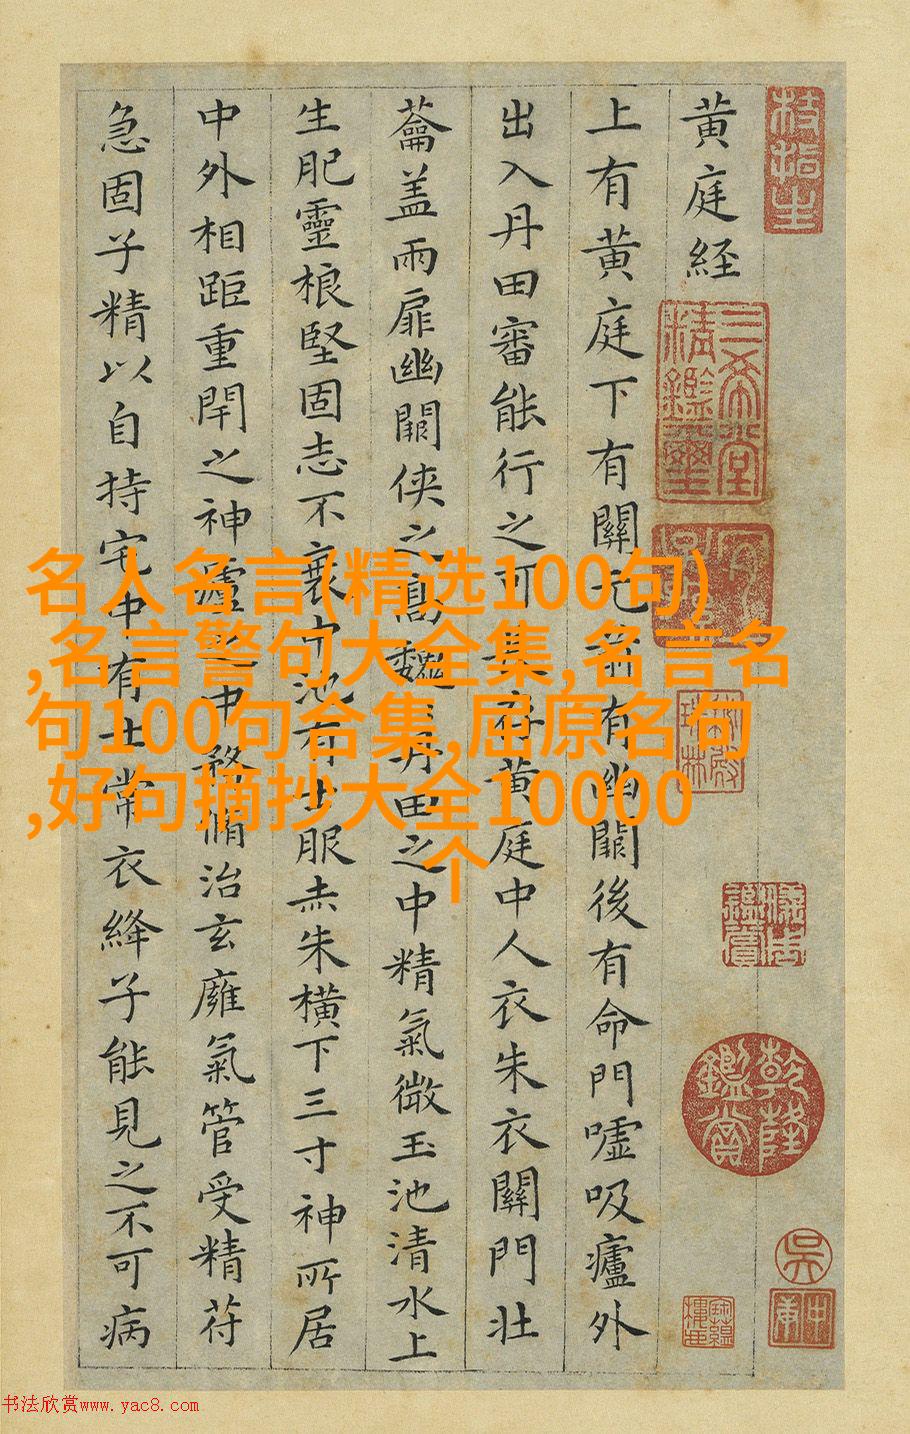 黄庭経
上有黄庭下有關元前有幽闕後有命門嘘吸廬外
出入丹田審能行之可長存黄庭中人衣朱衣關門壯
蘥盖兩扉幽闕俠之高魏魏丹田之中精氣微玉池清水上
生肥靈根堅固志不衰中池有士服赤朱橫下三寸神所居
中外相距重閇之神廬之中務脩治玄廱氣管受精苻
急固子精以自持宅中有士常衣絳子能見之不可病
三希堂精鑑璽
乾隆鑑賞
吳
名人名言(精选100句)
,名言警句大全集,名言名
句100句合集,屈原名句
,好句摘抄大全10000
个
书法欣赏www.yac8.com